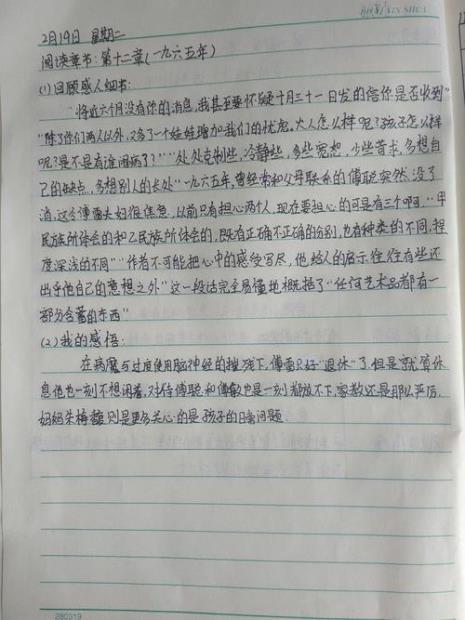 2月19日 星期二
阅读章节:第十二章(一九六五年)
(1)回顾感人细书:
"将近六个月没有你的消息,我甚至要怀疑十月三十一日发的信你是否收到"
"除了你们两人以外,又多了一个娃娃增加我们的忧虑。大人怎么样呢?孩子怎么样
呢?是不是有谁闹病了?""处处克制些,冷静些,多些宽恕,少些苛求,多想自
己的缺点,多想别人的长处"一九六五年,曾经常和父母联系的傅聪突然没了
消,这令傅雷夫妇很焦急,以前只有担心两个人,现在要担心的可是三个啊。"甲
民族所体会的和乙民族所体会的,既有正确不正确的分别,也有种类的不同,程
度深浅的不同""作者不可能把心中的感受写尽,他给人的启示往往有些还
出乎他自己的意想之外"这一段话完全易懂地概括了"任何艺术品都有一
部分含蓄的东西"
(2)我的感悟:
在病魔与过度使用脑神经的摧残下,傅雷只好"退休"了,但是就算休
息他也一刻不想闲着,对待傅聪和傅敏也是一刻都放不下,家教还是那么严厉,
妈妈朱梅馥则是更多关心的是孩子的日常问题.
280319